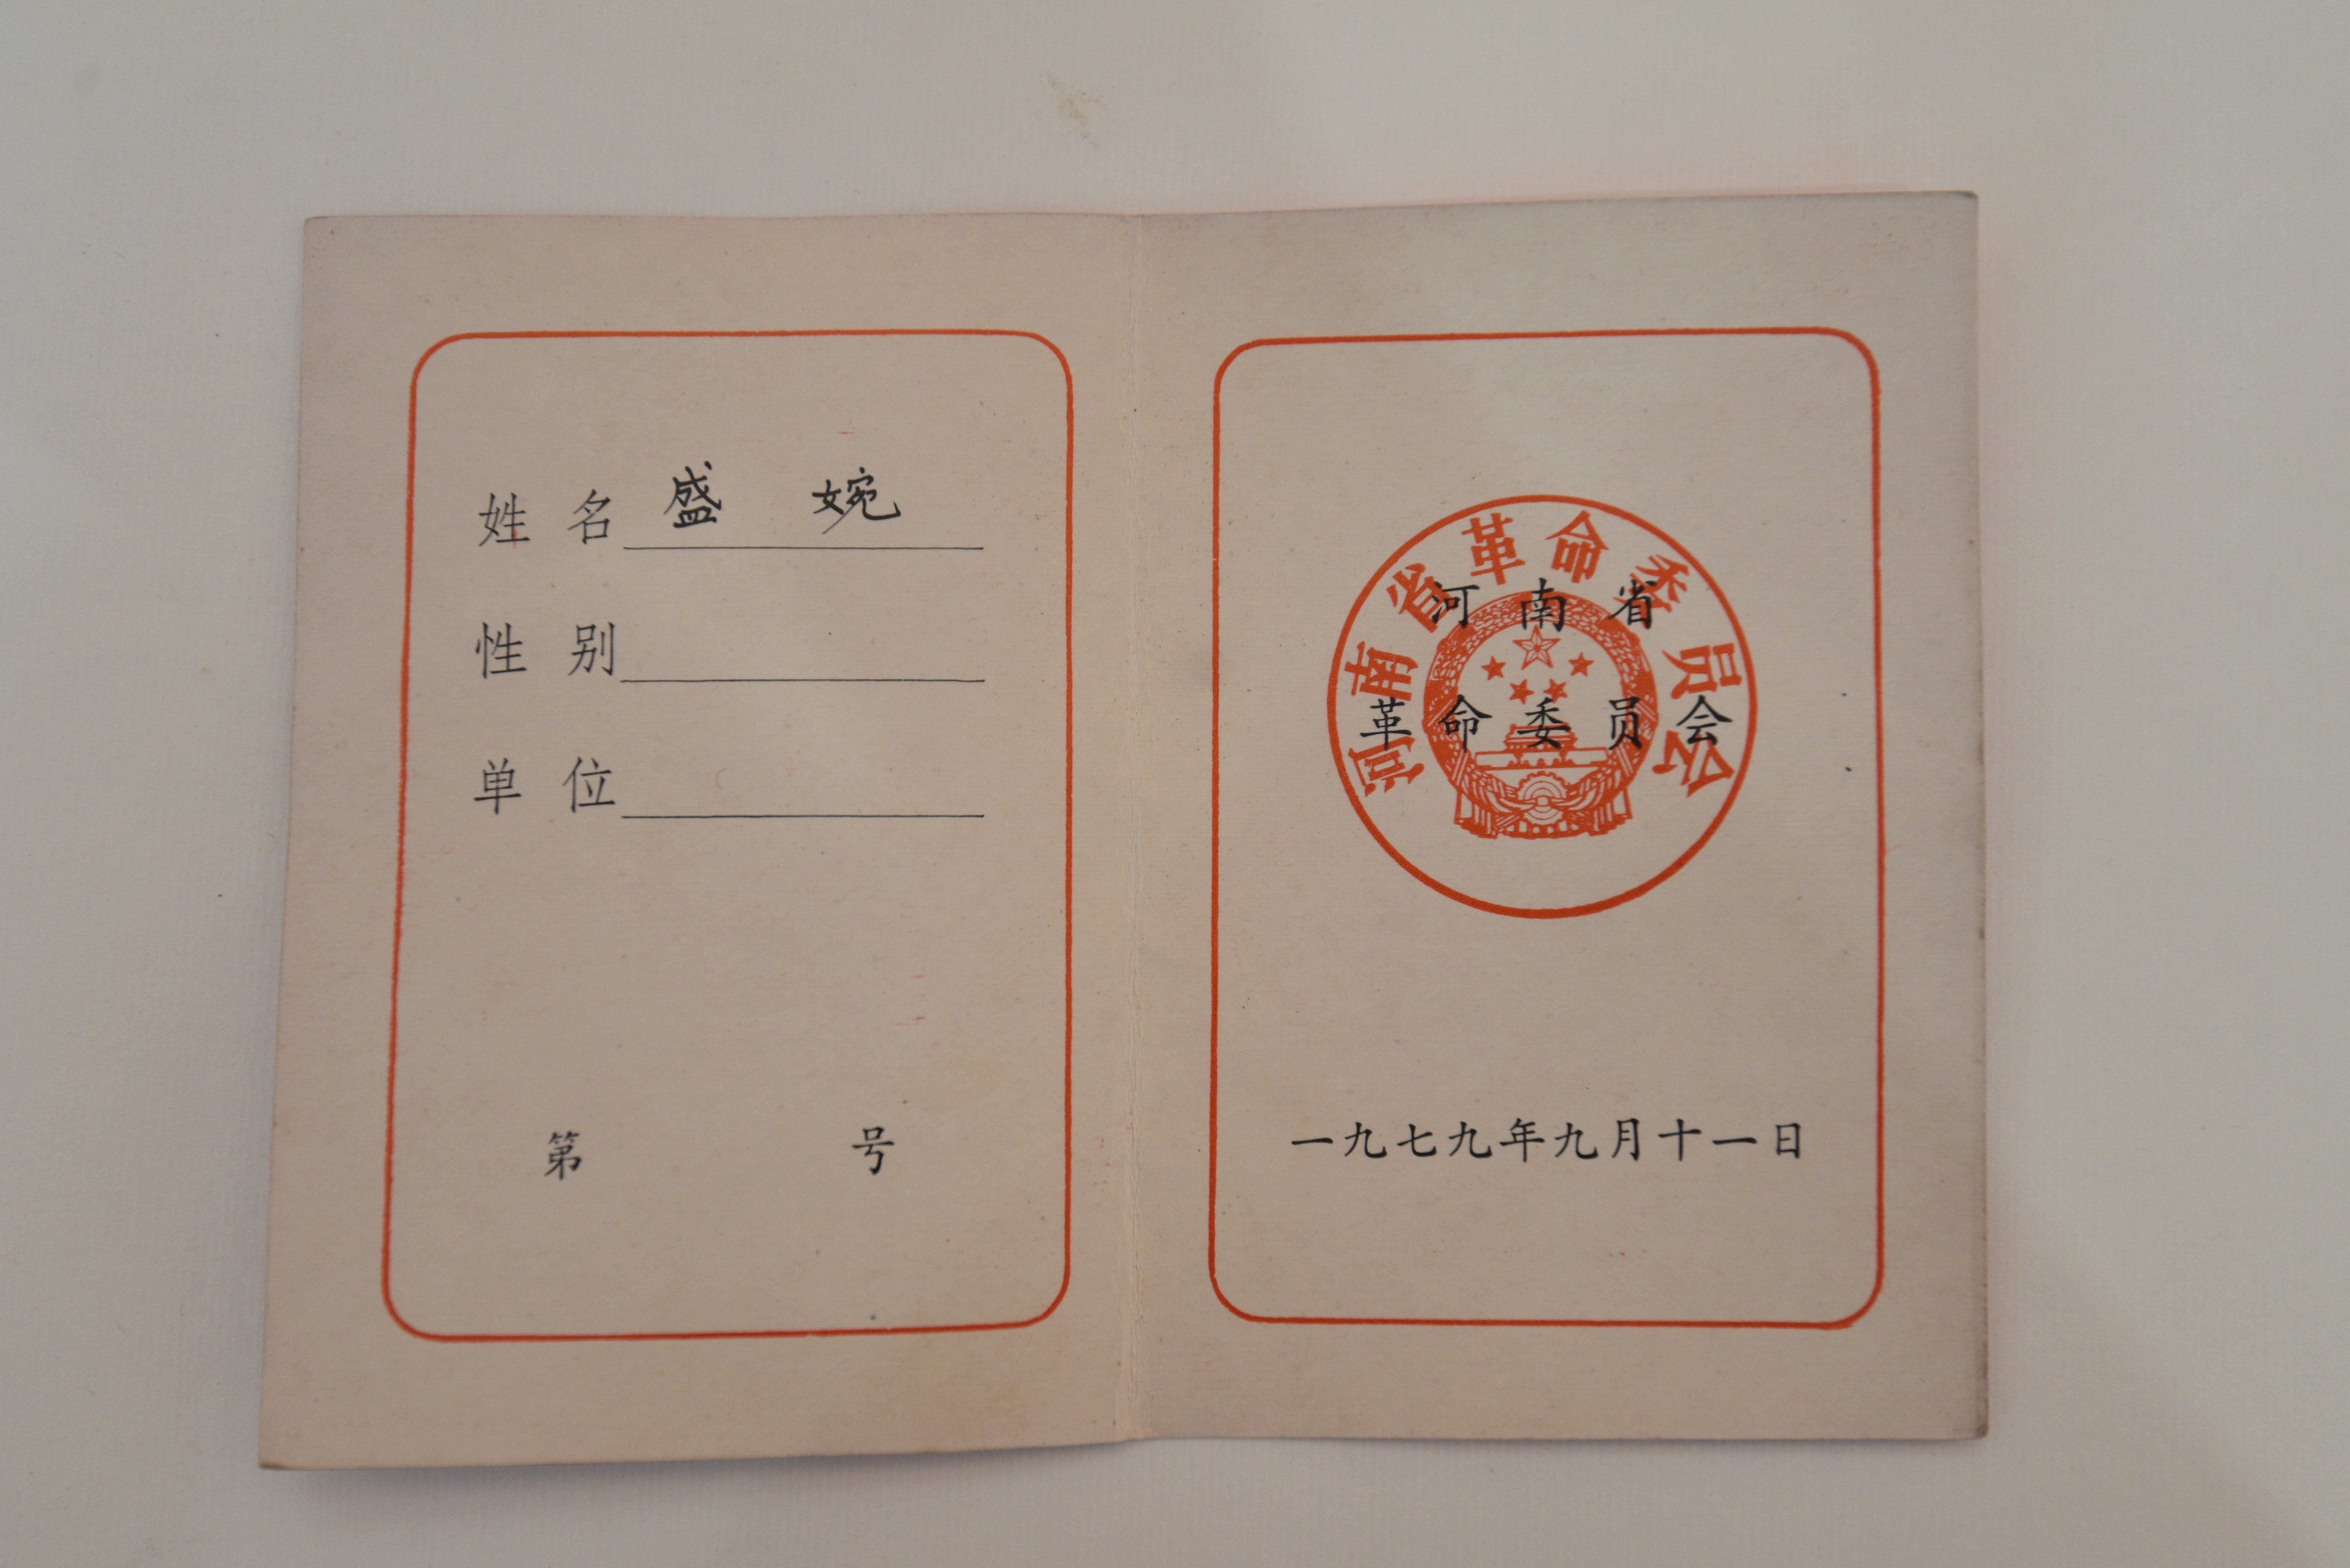 姓名 盛婉
性别
单位
第 号
河南省革命委员会
河南省
革命委员会
一九七九年九月十一日